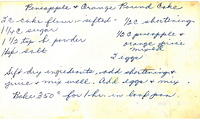 Pineapple & Orange Pound Cake
2 c cake flour - sifted - 1/2 c shortening
1 1/4 c sugar
1 1/2 tsp b. powder 1/2 c pineapple &
1/4 tsp salt orange juice
mixed
2 eggs
Sift dry ingredients, add shortening &
juice & mix well. Add eggs & mix.
Bake 350° for 1 hr. in loaf pan.